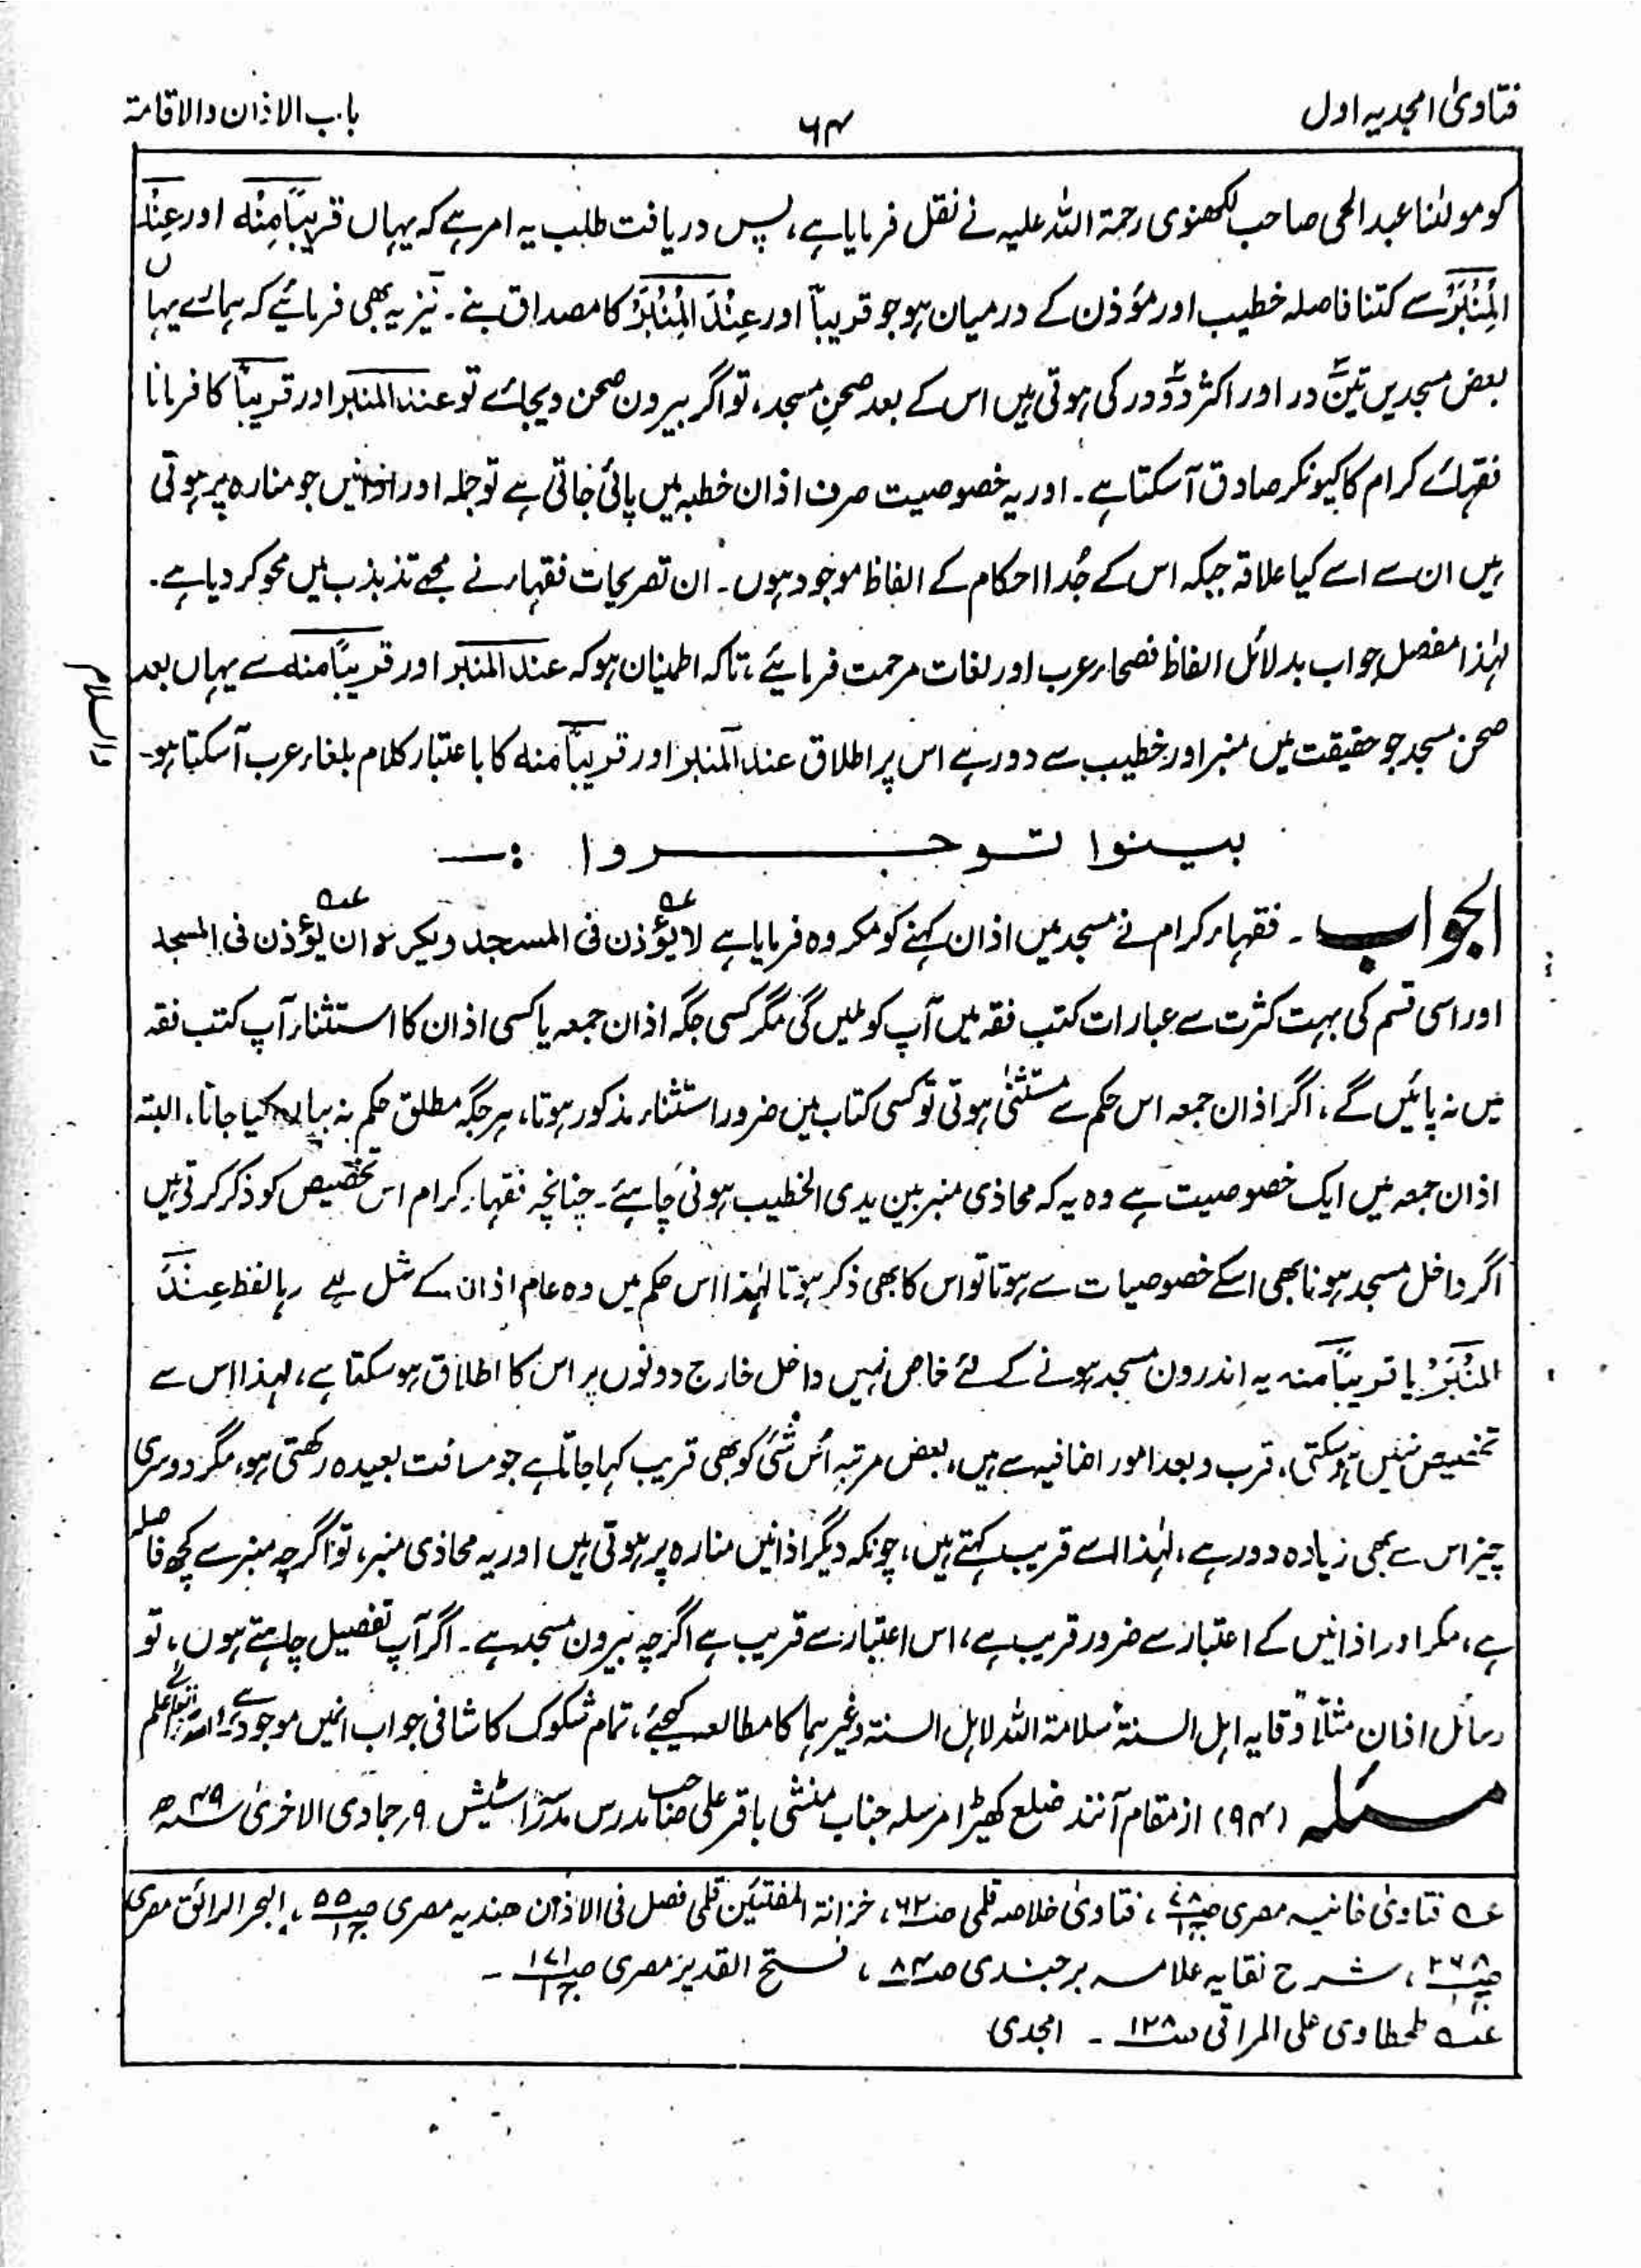 فتاویٰ امجدیہ اول
۶۴
باب الاذان والاقامۃ
کو مولٰنا عبد الحی صاحب لکھنوی رحمۃ اللہ علیہ نے نقل فرمایا ہے، پس دریافت طلب یہ امر ہے کہ یہاں قریباً مِنْہ اور عِنْدَ
الْمِنْبَرْ سے کتنا فاصلہ خطیب اور مؤذن کے درمیان ہو جو قریباً اور عِنْدَ الْمِنْبَرْ کا مصداق بنے۔ نیز یہ بھی فرمائیے کہ ہمارے یہاں
بعض مسجدیں تین در اور اکثر دو دور کی ہوتی ہیں اس کے بعد صحنِ مسجد، تو اگر بیرون صحن دیجائے تو عند المنبر اور قریباً کا فرمانا
فقہائے کرام کا کیونکر صادق آسکتا ہے۔ اور یہ خصوصیت صرف اذان خطبہ میں پائی جاتی ہے تو جملہ اور اذانیں جو منارہ پر ہوتی
ہیں ان سے اسے کیا علاقہ جبکہ اس کے جُدا احکام کے الفاظ موجود ہوں۔ ان تصریحات فقہاء نے مجھے تذبذب میں محو کر دیا ہے۔
لہٰذا مفصل جواب بدلائل الفاظ فصحاء عرب اور لغات مرحمت فرمائیے، تاکہ اطمینان ہو کہ عند المنبر اور قریباً منہ سے یہاں بعد
صحن مسجد جو حقیقت میں منبر اور خطیب سے دور ہے اس پر اطلاق عند المنبر اور قریباً منہ کا باعتبار کلام بلغاء عرب آسکتا ہو۔
والسلام
بینوا توجروا :۔
الجواب ۔ فقہاء کرام نے مسجد میں اذان کہنے کو مکروہ فرمایا ہے لا یؤذن فی المسجد ویکرہ ان یؤذن فی المسجد
اور اسی قسم کی بہت کثرت سے عبارات کتب فقہ میں آپ کو ملیں گی مگر کسی جگہ اذان جمعہ یا کسی اذان کا استثناء آپ کتب فقہ
میں نہ پائیں گے، اگر اذان جمعہ اس حکم سے مستثنیٰ ہوتی تو کسی کتاب میں ضرور استثناء مذکور ہوتا، ہر جگہ مطلق حکم نہ بیان کیا جاتا، البتہ
اذان جمعہ میں ایک خصوصیت ہے وہ یہ کہ محاذی منبر بین یدی الخطیب ہونی چاہئے۔ چنانچہ فقہاء کرام اس تخصیص کو ذکر کرتے ہیں
اگر داخل مسجد ہونا بھی اسکے خصوصیات سے ہوتا تو اس کا بھی ذکر ہوتا لہٰذا اس حکم میں وہ عام اذان کے مثل ہے رہا لفظ عِنْدَ
المنْبَرْ یا قریباً منہ یہ اندرون مسجد ہونے کے لئے خاص نہیں داخل خارج دونوں پر اس کا اطلاق ہوسکتا ہے، لہذا اس سے
تخصیص نہیں ہوسکتی، قرب و بعد امور اضافیہ سے ہیں، بعض مرتبہ اُس شئی کو بھی قریب کہا جاتا ہے جو مسافت بعیدہ رکھتی ہو، مگر دوسری
چیز اس سے بھی زیادہ دور ہے، لہٰذا اسے قریب کہتے ہیں، چونکہ دیگر اذانیں منارہ پر ہوتی ہیں اور یہ محاذی منبر، تو اگرچہ منبر سے کچھ فاصلہ
ہے، مگر اور اذانیں کے اعتبار سے ضرور قریب ہے، اس اعتبار سے قریب ہے اگرچہ بیرون مسجد ہے۔ اگر آپ تفصیل چاہتے ہوں، تو
رسائل اذان مثلاً وقایہ اہل السنۃ سلامۃ اللہ لاہل السنۃ وغیرہما کا مطالعہ کیجئے، تمام شکوک کا شافی جواب انمیں موجود ہے۔ واللہ تعالیٰ اعلم
مسئلہ (۹۴) از مقام آنند ضلع کھیڑا مرسلہ جناب منشی باقر علی صاحب مدرس مدرسہ اسٹیشن ۹؍جمادی الاخریٰ ۴۹ھ
عہ فتاویٰ خانیہ مصری ص۷۸ ج۱، فتاویٰ خلاصہ قلمی ص۶۲، خزانۃ المفتیین قلمی فصل فی الاذان ھندیہ مصری ص۵۵ ج۱، البحر الرائق مصری
ص۲۶۸ ج۱، شرح نقایہ علامہ برجندی ص۸۴، فتح القدیر مصری ص۱۷۱ ج۱ ۔
عہ طحطاوی علی المراقی ص۱۲۸ ۔ امجدی